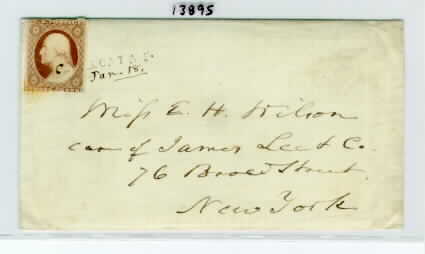 13895
C
Jan. 18.
Miss E. H. Wilson
care of James Lee & Co.
76 Broad Street
New York